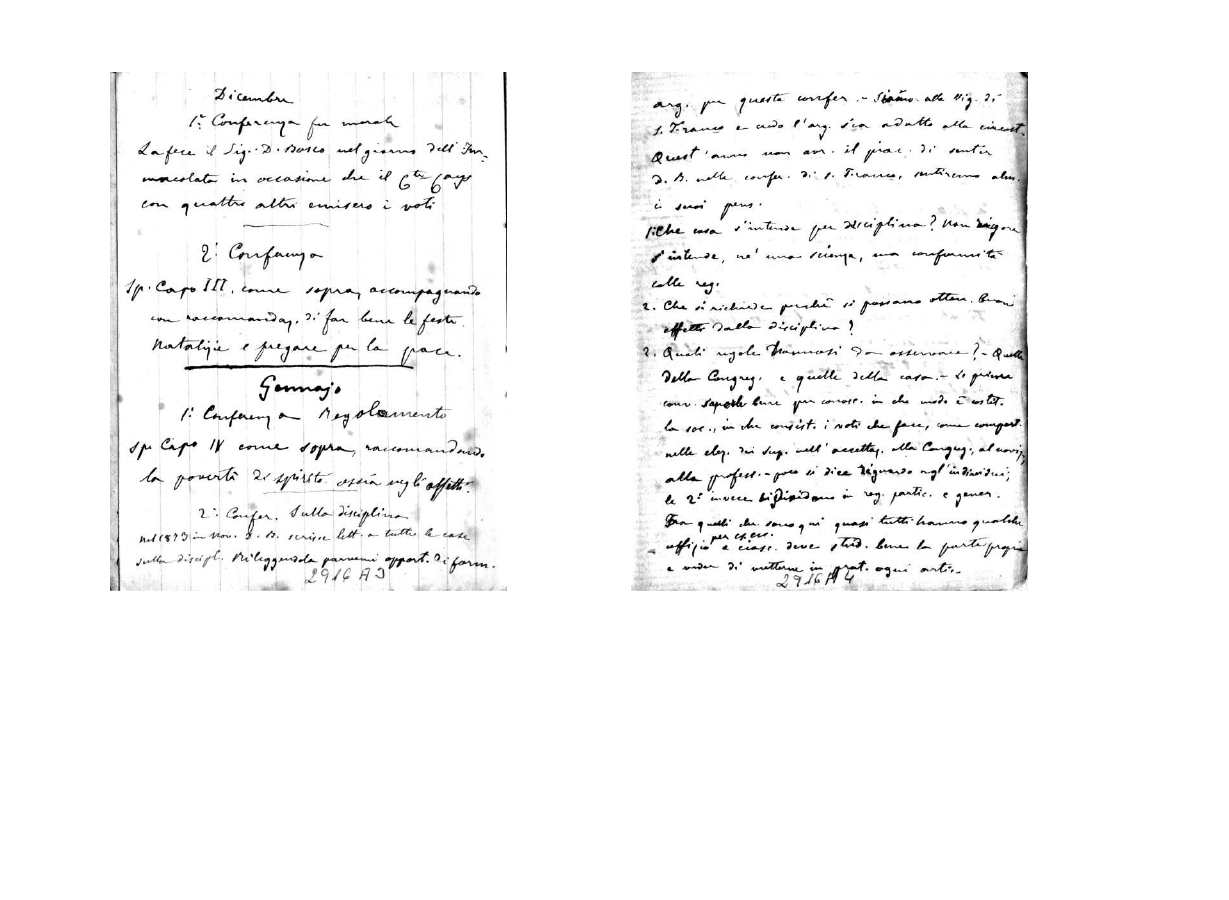 Dicembre
1ª Conferenza fu morale
La fece il Sig. D. Bosco nel giorno dell'Im-
macolata in occasione che il Cte Cays
con quattro altri emisero i voti
2ª Conferenza
Sp. Capo III. come sopra, accompagnando
con raccomandaz. di far bene le feste
Natalizie e pregare per la pace.
Gennajo
1ª Conferenza Regolamento
Sp. Capo IV come sopra, raccomandando
la povertà di spirito ossia negli affetti.
2ª Confer. Sulla disciplina
nel 1873 in Nov. D. B. scrisse lett. a tutte le case
sulla discipl. Rileggendola parvemi opport. di farm.
2916 A3
arg. per questa confer. - Siamo alla vig. di
S. Franco e credo l'arg. sia adatto alla circost.
Quest'anno non avr. il piac. di sentir
D. B. nelle confer. di S. Franco, sentiremo alm.
i suoi pens.
1. Che cosa s'intende per disciplina? Non rigore
s'intende, nè una scienza, ma conformità
colle reg.
2. Che si richiede perchè si possano otten. buoni
effetti dalla disciplina?
3. Quali regole hannosi da osservare? - Quelle
della Congreg. e quelle della casa. - Le prime
conv. saperle bene per conosc. in che modo è costit.
la soc., in che consist. i voti che face, come comport.
nelle elez. dei sup. nell'accettaz. alla Congreg., al noviz.,
alla profess. - poco si dice riguardo agl'individui;
le 2e invece si dividono in reg. partic. e gener.
Fra quelli che sono qui quasi tutti hanno qualche
per es. es.
uffizio e ciasc. deve stud. bene la parte propria
e veder di metterne in prat. ogni artic.
2916 A4